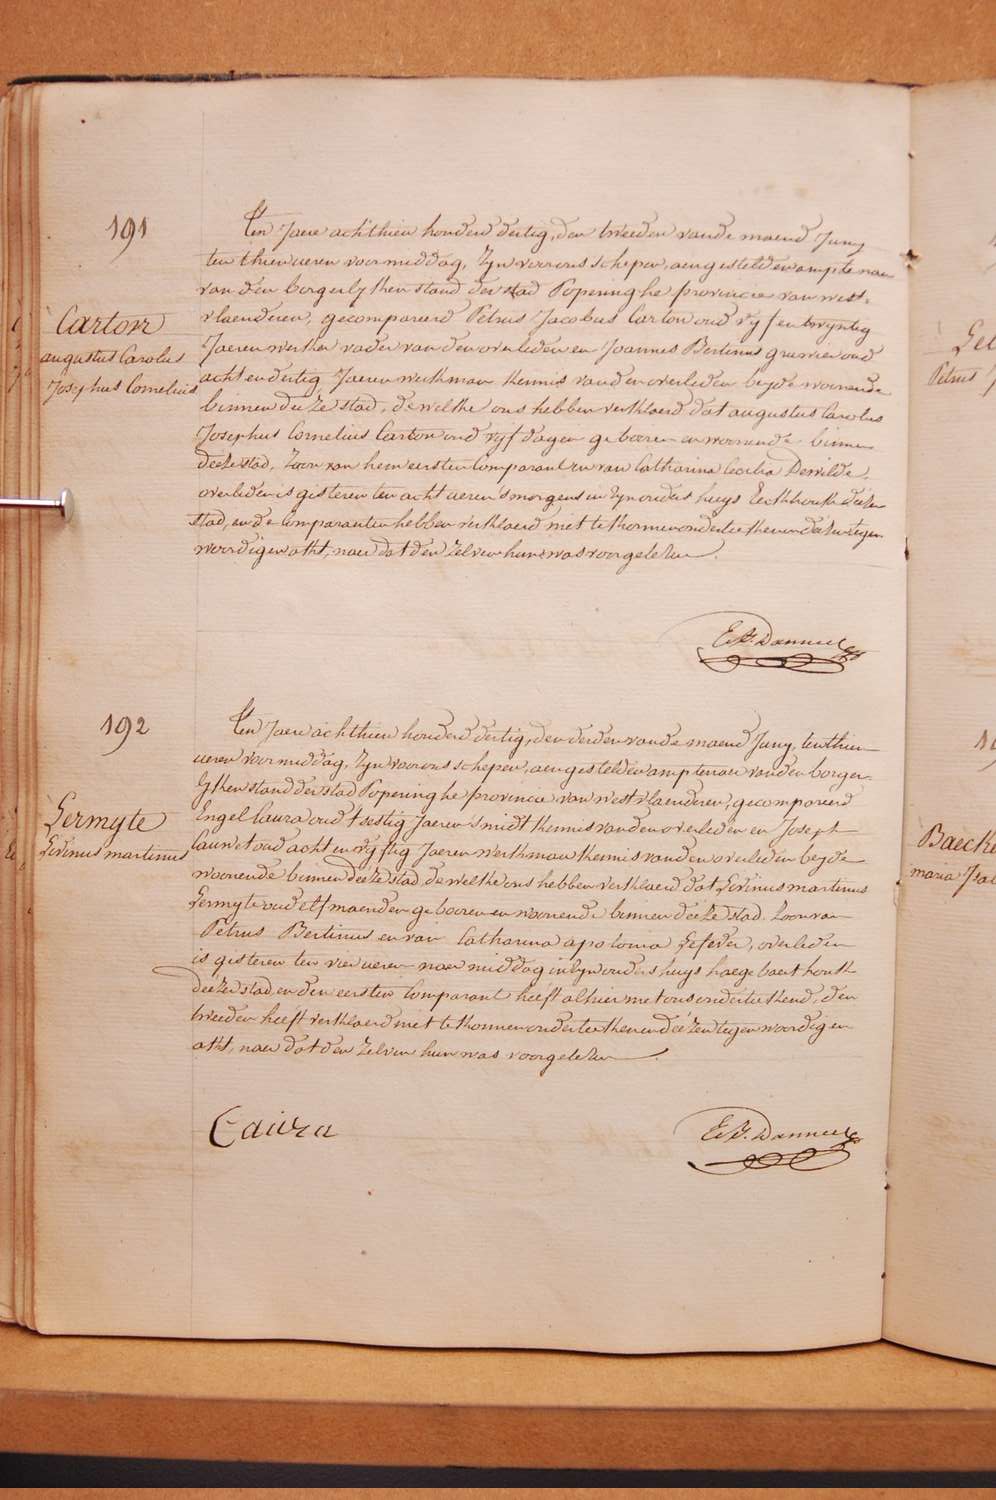 191
Carton
augustus Carolus
Josephus Cornelius
Ten Jaere achthien honderd dertig, den tweeden van de maend Juny
ten thien ueren voormiddag, Zyn voor ons schepen, aengestelden ampte naer
van den borgerlyken stand der stad Poperinghe provincie van west-
vlaenderen, gecompareerd Petrus Jacobus Carton oud vyf en twyntig
Jaeren werker vader van den overleden en Joannes Bertinus oud
acht en dertig Jaeren werkman kennis van den overleden beyde woonende
binnen deeze stad, dewelke ons hebben verklaerd dat augustus Carolus
Josephus Cornelius Carton oud vyf dagen geboren en woonende binnen
deeze stad, zoon van hem eersten Comparant en van Catharina Cecilia Dewilde,
overleden is gisteren ten acht ueren s'morgens in zyn ouders huys Eeckhoutk deezer
stad, en de Comparanten hebben verklaerd niet te konnen onderteekenen deezen tegen
woordigen akt, naer dat den zelven hun was voorgelezen.
192
Lermyte
Livinus martinus
Ten Jaere achthien honderd dertig, den derden van de maend Juny, ten thien
ueren voormiddag, Zyn voor ons schepen, aengestelden amptenaer van den borger-
lyken stand der stad Poperinghe provincie van westvlaenderen, gecompareerd
Engel Caura oud t'sestig Jaeren smidt kennis van den overleden en Joseph
oud acht en vyftig Jaeren werkman kennis van den overleden beyde
woonende binnen deeze stad, dewelke ons hebben verklaerd dat Livinus martinus
Lermyte oud elf maenden geboren en woonende binnen deeze stad. Zoon van
Petrus Bertinus en van Catharina apolonia Lefever, overleden
is gisteren ten vier ueren naer middag in zyn ouders huys haegebaert houtk
deezer stad, en den eersten Comparant heeft alhier met ons onderteekend, den
tweeden heeft verklaerd niet te konnen onderteekenen deezen tegenwoordigen
akt, naer dat den zelven hun was voorgelezen.
Caura
Petrus
Baecke
maria